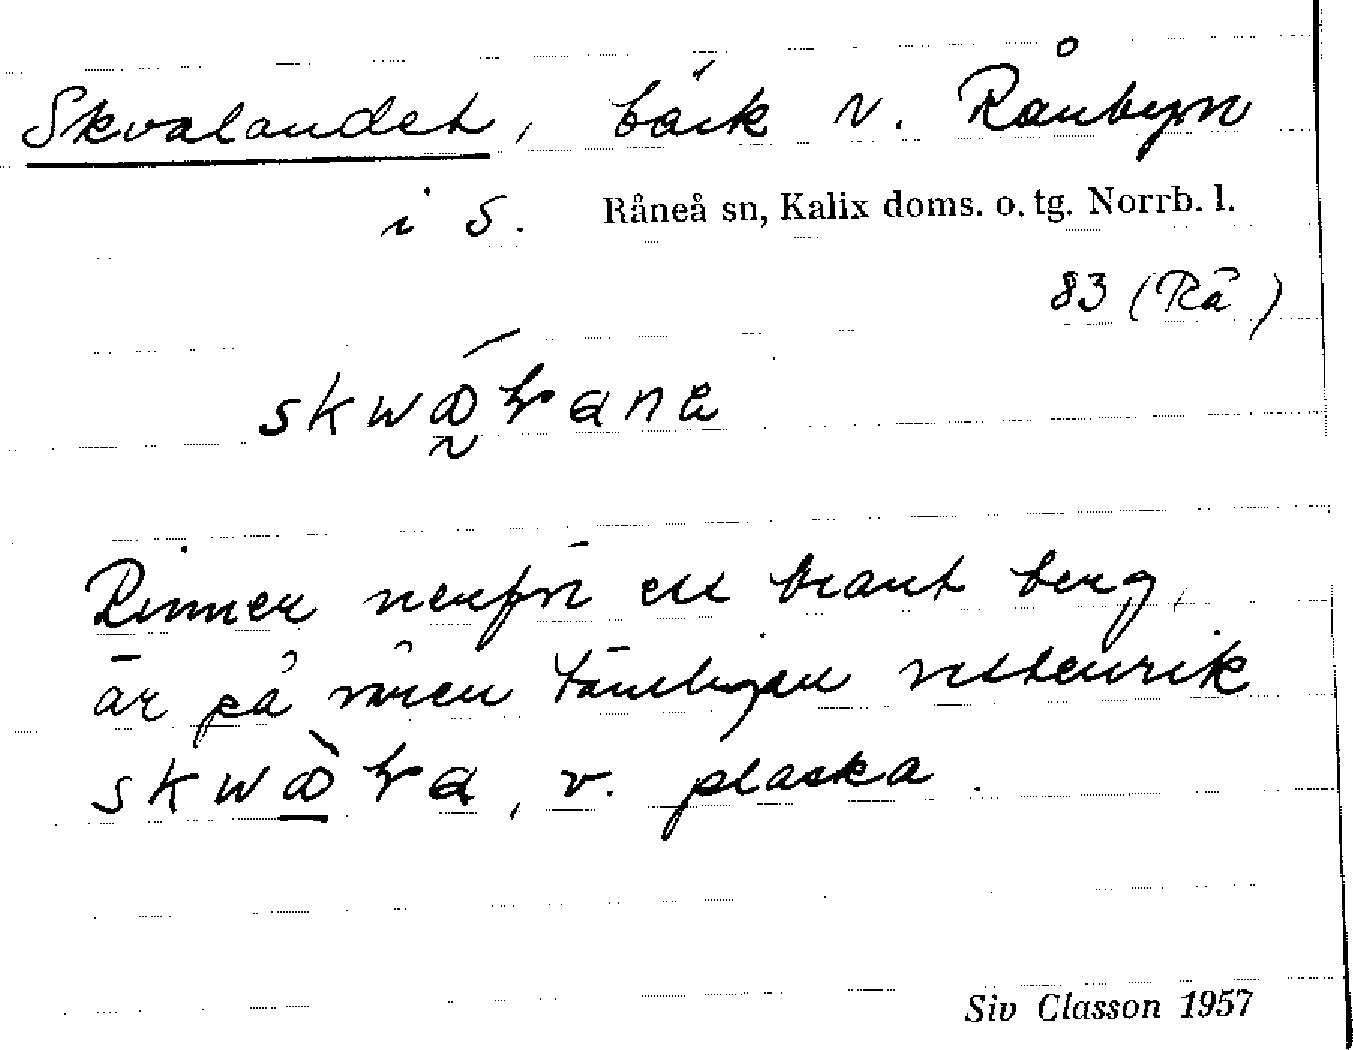 Skvalandet, bäck v. Rånbyn
i S. Råneå sn, Kalix doms. o. tg. Norrb. l.
83 (Rå)
Rinner nerför ett brant berg,
är på våren tämligen vattenrik
, v. plaska.
Siv Classon 1957